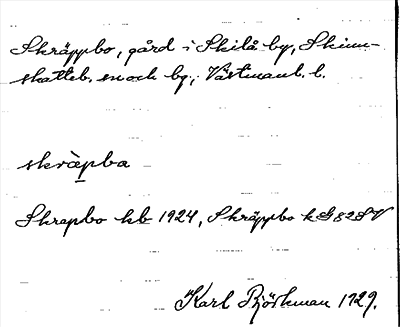 Skräppbo, gård i Skilå by, Skinn-
skatteb. sn och bg., Västmanl. l.
skräpba
Skrapbo kb 1924, Skräppbo k G 82 SV
Karl Björkman 1929.